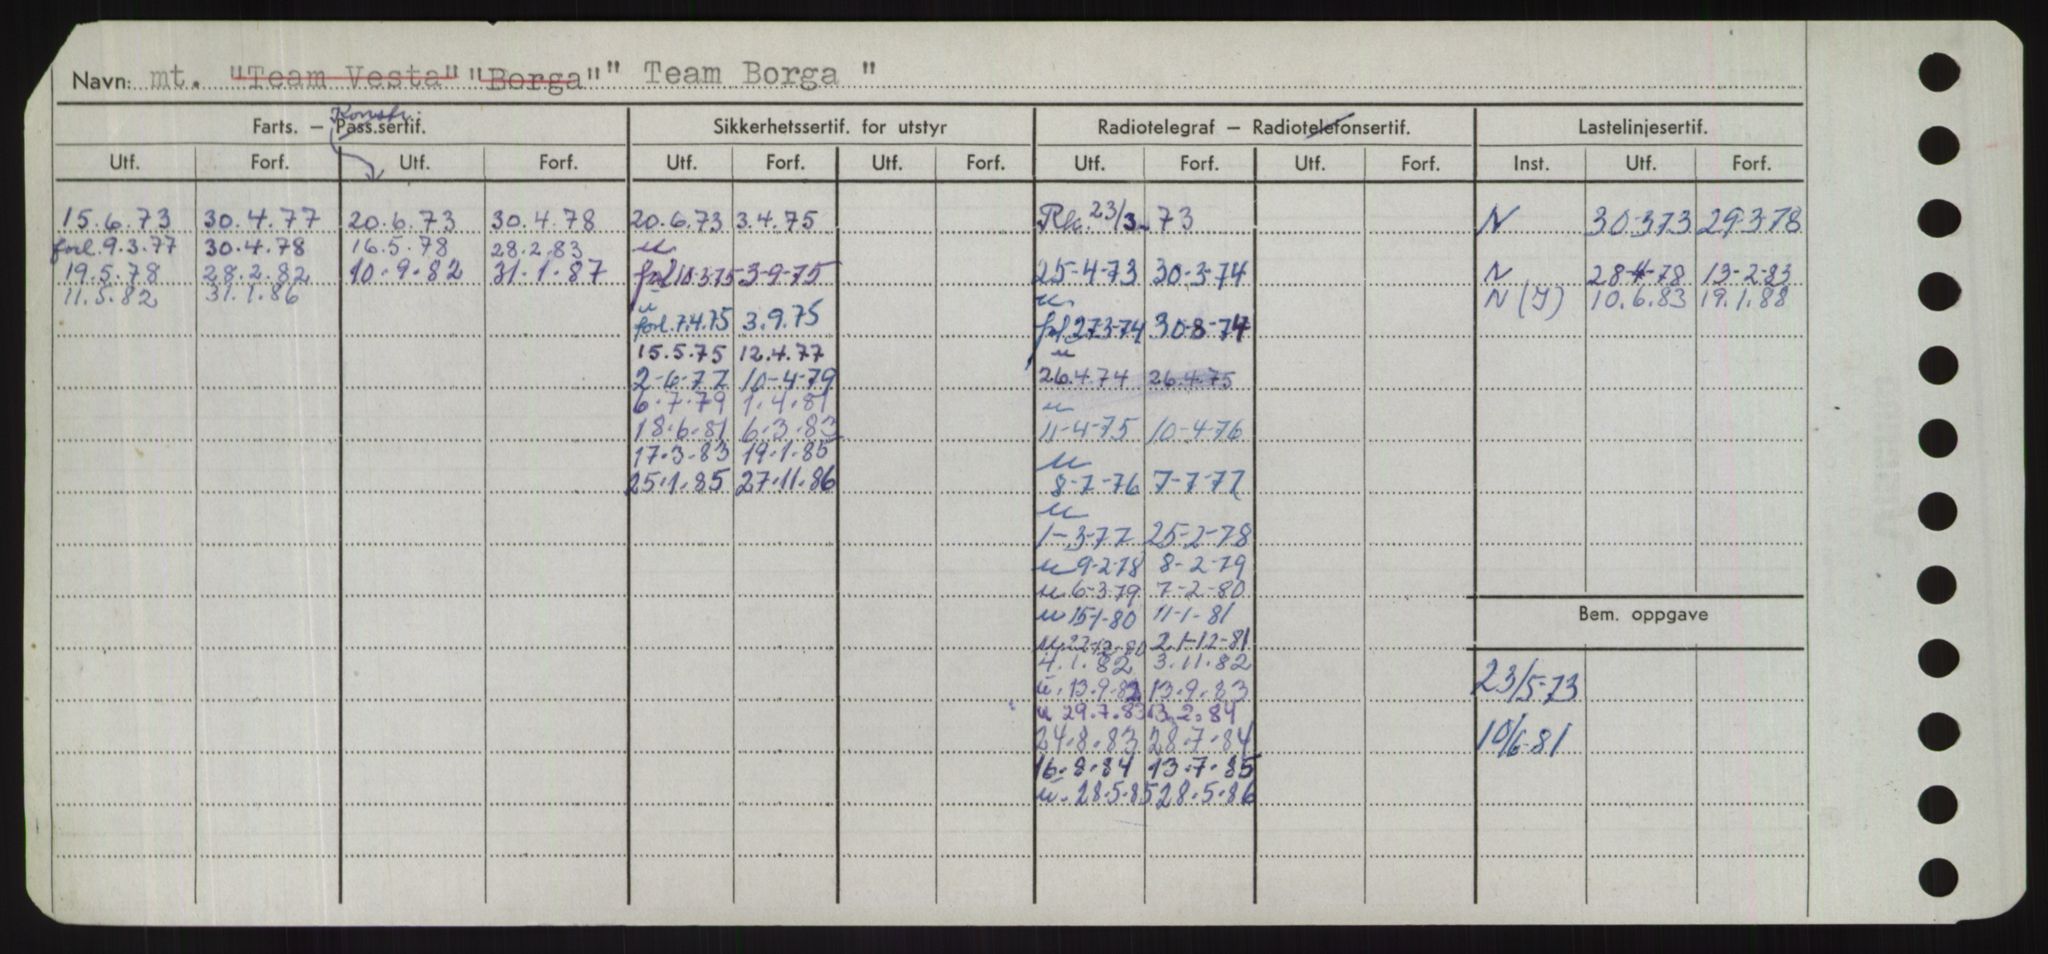 Navn: mt. "Team Vesta" "Borga" " Team Borga "
Konstr.
Farts. – Pass.sertif. Sikkerhetssertif. for utstyr Radiotelegraf – Radiotelefonsertif. Lastelinjesertif.
Utf. Forf. Utf. Forf. Utf. Forf. Utf. Forf. Utf. Forf. Utf. Forf. Inst. Utf. Forf.
15.6.73 30.4.77 20.6.73 30.4.78 20.6.73 3.4.75 Rk. 23/3-73 N 30.3.73 29.3.78
forl. 9.3.77 30.4.78 16.5.78 28.2.83 u
19.5.78 28.2.82 10.9.82 31.1.87 forl 10.3.75 3-9-75 25-4-73 30-3-74 N 28-4-78 13-2-83
11.5.82 31.1.86 u u N (I) 10.6.83 19.1.88
forl. 7.4.75 3.9.75 forl 27-3-74 30-8-74
15.5.75 12.4.77 u
2-6-77 10-4-79 26.4.74 26.4.75
6.7.79 1.4.81 u
18.6.81 6.3.83 11-4-75 10-4-76
17.3.83 19.1.85 u
25.1.85 27.11.86 8-7-76 7-7-77
u
1-3-77 25-2-78
u 9-2-78 8-2-79
u 6-3-79 7-2-80
u 15-1-80 11-1-81
Bem. oppgave
u 22-12-80 21-12-81
4.1.82 3.11.82
u. 13.9.82 13.9.83 23/5-73
u 29.7.83 13.2.84
24.8.83 28.7.84 10/6-81
16.8.84 13.7.85
u. 28.5.85 28.5.86